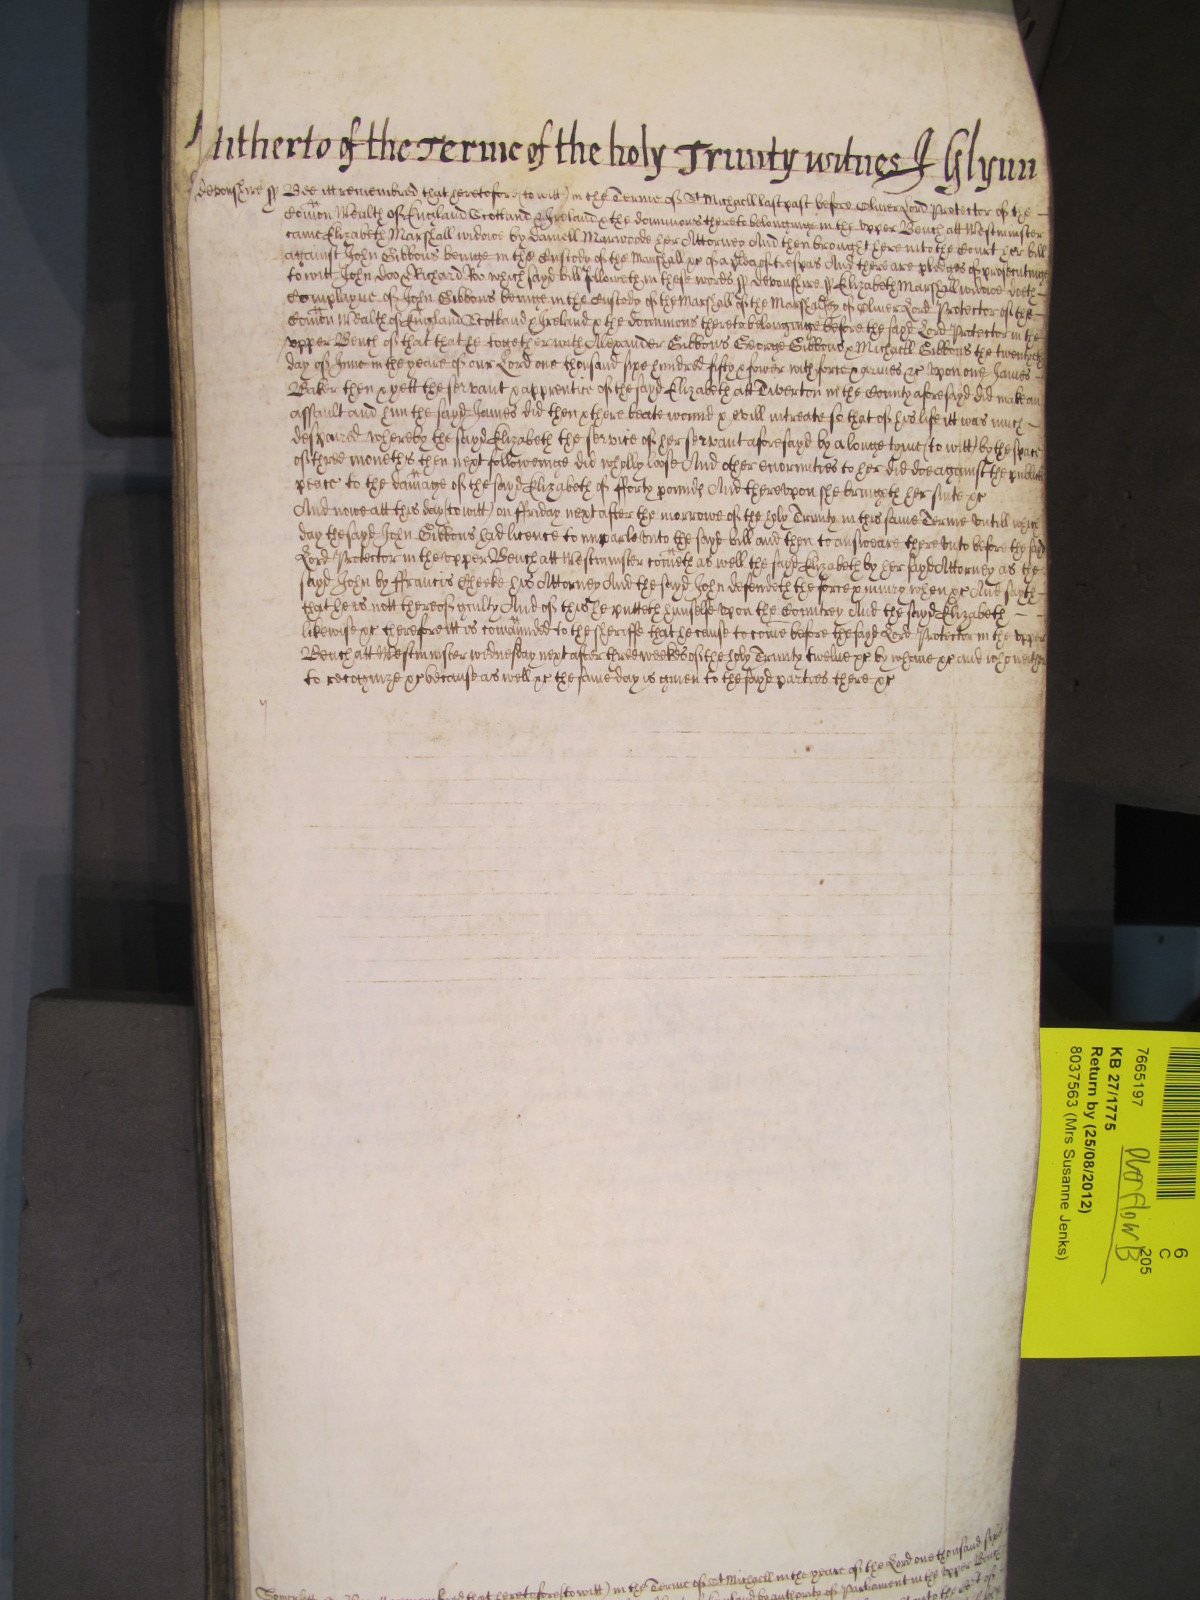 Hitherto of the Terme of the holy Trinity witnes J Glynn
Devonshire ss Bee itt remembred that heretofore (to witt) in the Terme of St Michaell last past before Oliver Lord Protector of the
Com̄on Wealth of England Scotland & Ireland & the dominions thereto belonginge in the upper Bench att Westminster
came Elizabeth Marshall widowe by Daniell Marwoode her Attorney And then brought here into the Court her bill
against John Gibbons beinge in the Custody of the Marshall &c of a plea of trespas And there are pledges of prosecutinge
to witt John Doo & Richard Roo which sayd bill followeth in these words ss Devonshire ss Elizabeth Marshall widowe doeth
Complayne of John Gibbons beinge in the Custody of the Marshall of the Marshalsey of Oliver Lord Protector of the
Com̄on Wealth of England Scotland & Ireland & the dominions thereto belonginge before the sayd Lord Protector in the
upper Bench of that that he together with Alexander Gibbons George Gibbons & Michaell Gibbons the twentyth
day of June in the yeare of our Lord one thousand sixe hundred fifty & fower with force & armes &c upon one James
Baker then & yett the servant & apprentice of the sayd Elizabeth att Tiverton in the County aforesayd did make an
assault and him the sayd James did then & there beate wound & evill intreate so that of his life itt was much
despaired whereby the sayd Elizabeth the service of her servant aforesayd by a longe tyme (to witt) by the space
of three moneths then next followeinge did wholly loose And other enormities to her did doe against the publick
peace to the dam̄age of the sayd Elizabeth of fforty pounds And thereupon she bringeth her suite &c
And nowe att this day (to witt) on ffriday next after the morrowe of the holy Trinity in this same Terme untill which
day the sayd John Gibbons had licence to imparle unto the sayd bill and then to answeare thereunto before the sayd
Lord Protector in the upper Bench att Westminster cometh as well the sayd Elizabeth by her sayd Attorney as the
sayd John by ffrancis Cheeke his Attorney And the sayd John defendeth the force & iniury when &c And sayth
that he is nott thereof guilty And of this he putteth himselfe upon the Countrey And the sayd Elizabeth
likewise &c therefore itt is com̄aunded to the sheriffe that he cause to come before the sayd Lord Protector in the upper
Bench att Westminster wednesday next after three weekes of the holy Trinity twelve &c by whome &c and who neither
to recognize &c because as well &c the same day is given to the sayd parties there &c
7665197
KB 27/1775
Return by (25/08/2012)
8037563 (Mrs Susanne Jenks)
Overflow B
205
6
C
that heretofore (to witt) in the Terme of St Michaell in the yeare of the Lord one thousand
by authority of Parliament in the upper Bench